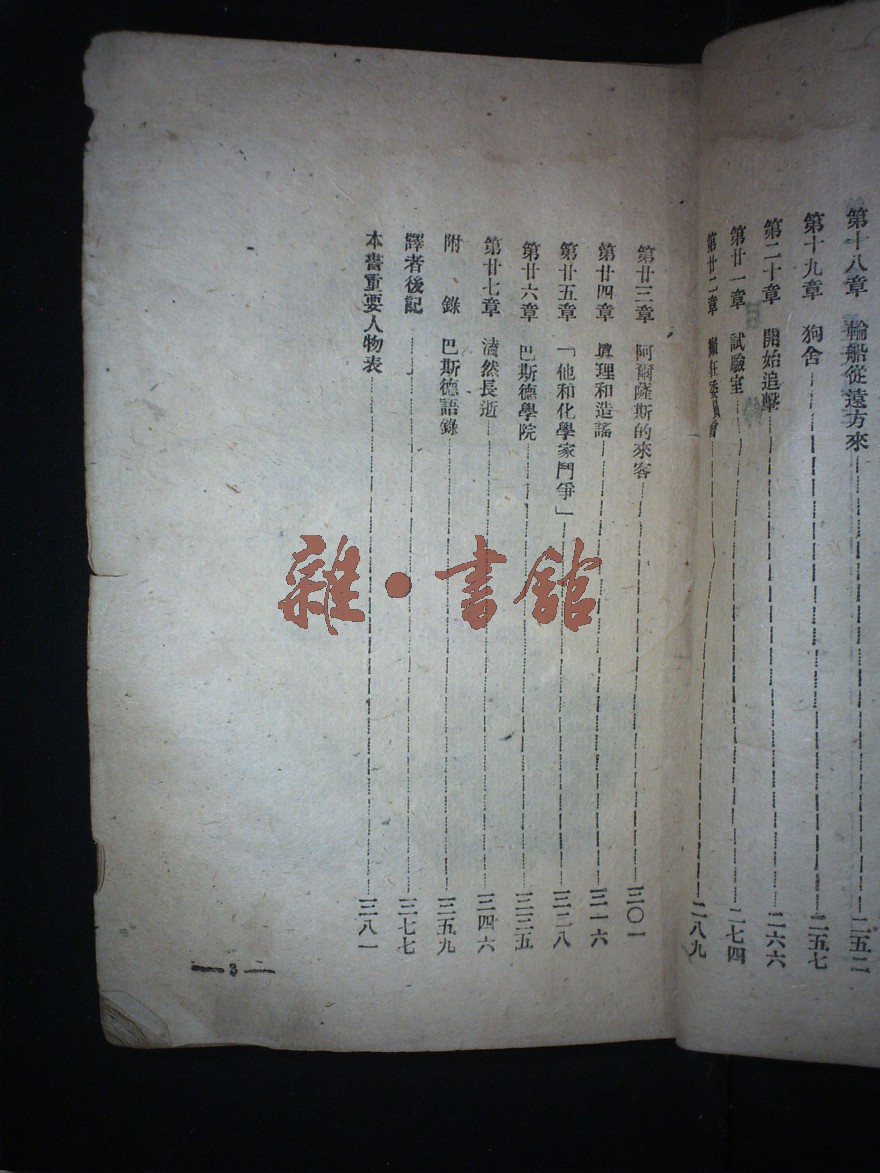 第十八章 輪船從遠方來 二五二
第十九章 狗舍 二五七
第二十章 開始追擊 二六六
第廿一章 試驗室 二七四
第廿二章 癲狂委員會 二八九
第廿三章 阿爾薩斯的來客 三〇一
第廿四章 眞理和造謠 三一六
第廿五章 「他和化學家鬥爭」 三二八
第廿六章 巴斯德學院 三三五
第廿七章 溘然長逝 三四六
附錄 巴斯德語錄 三五九
譯者後記 三七七
本書重要人物表 三八一
3
雜·書館